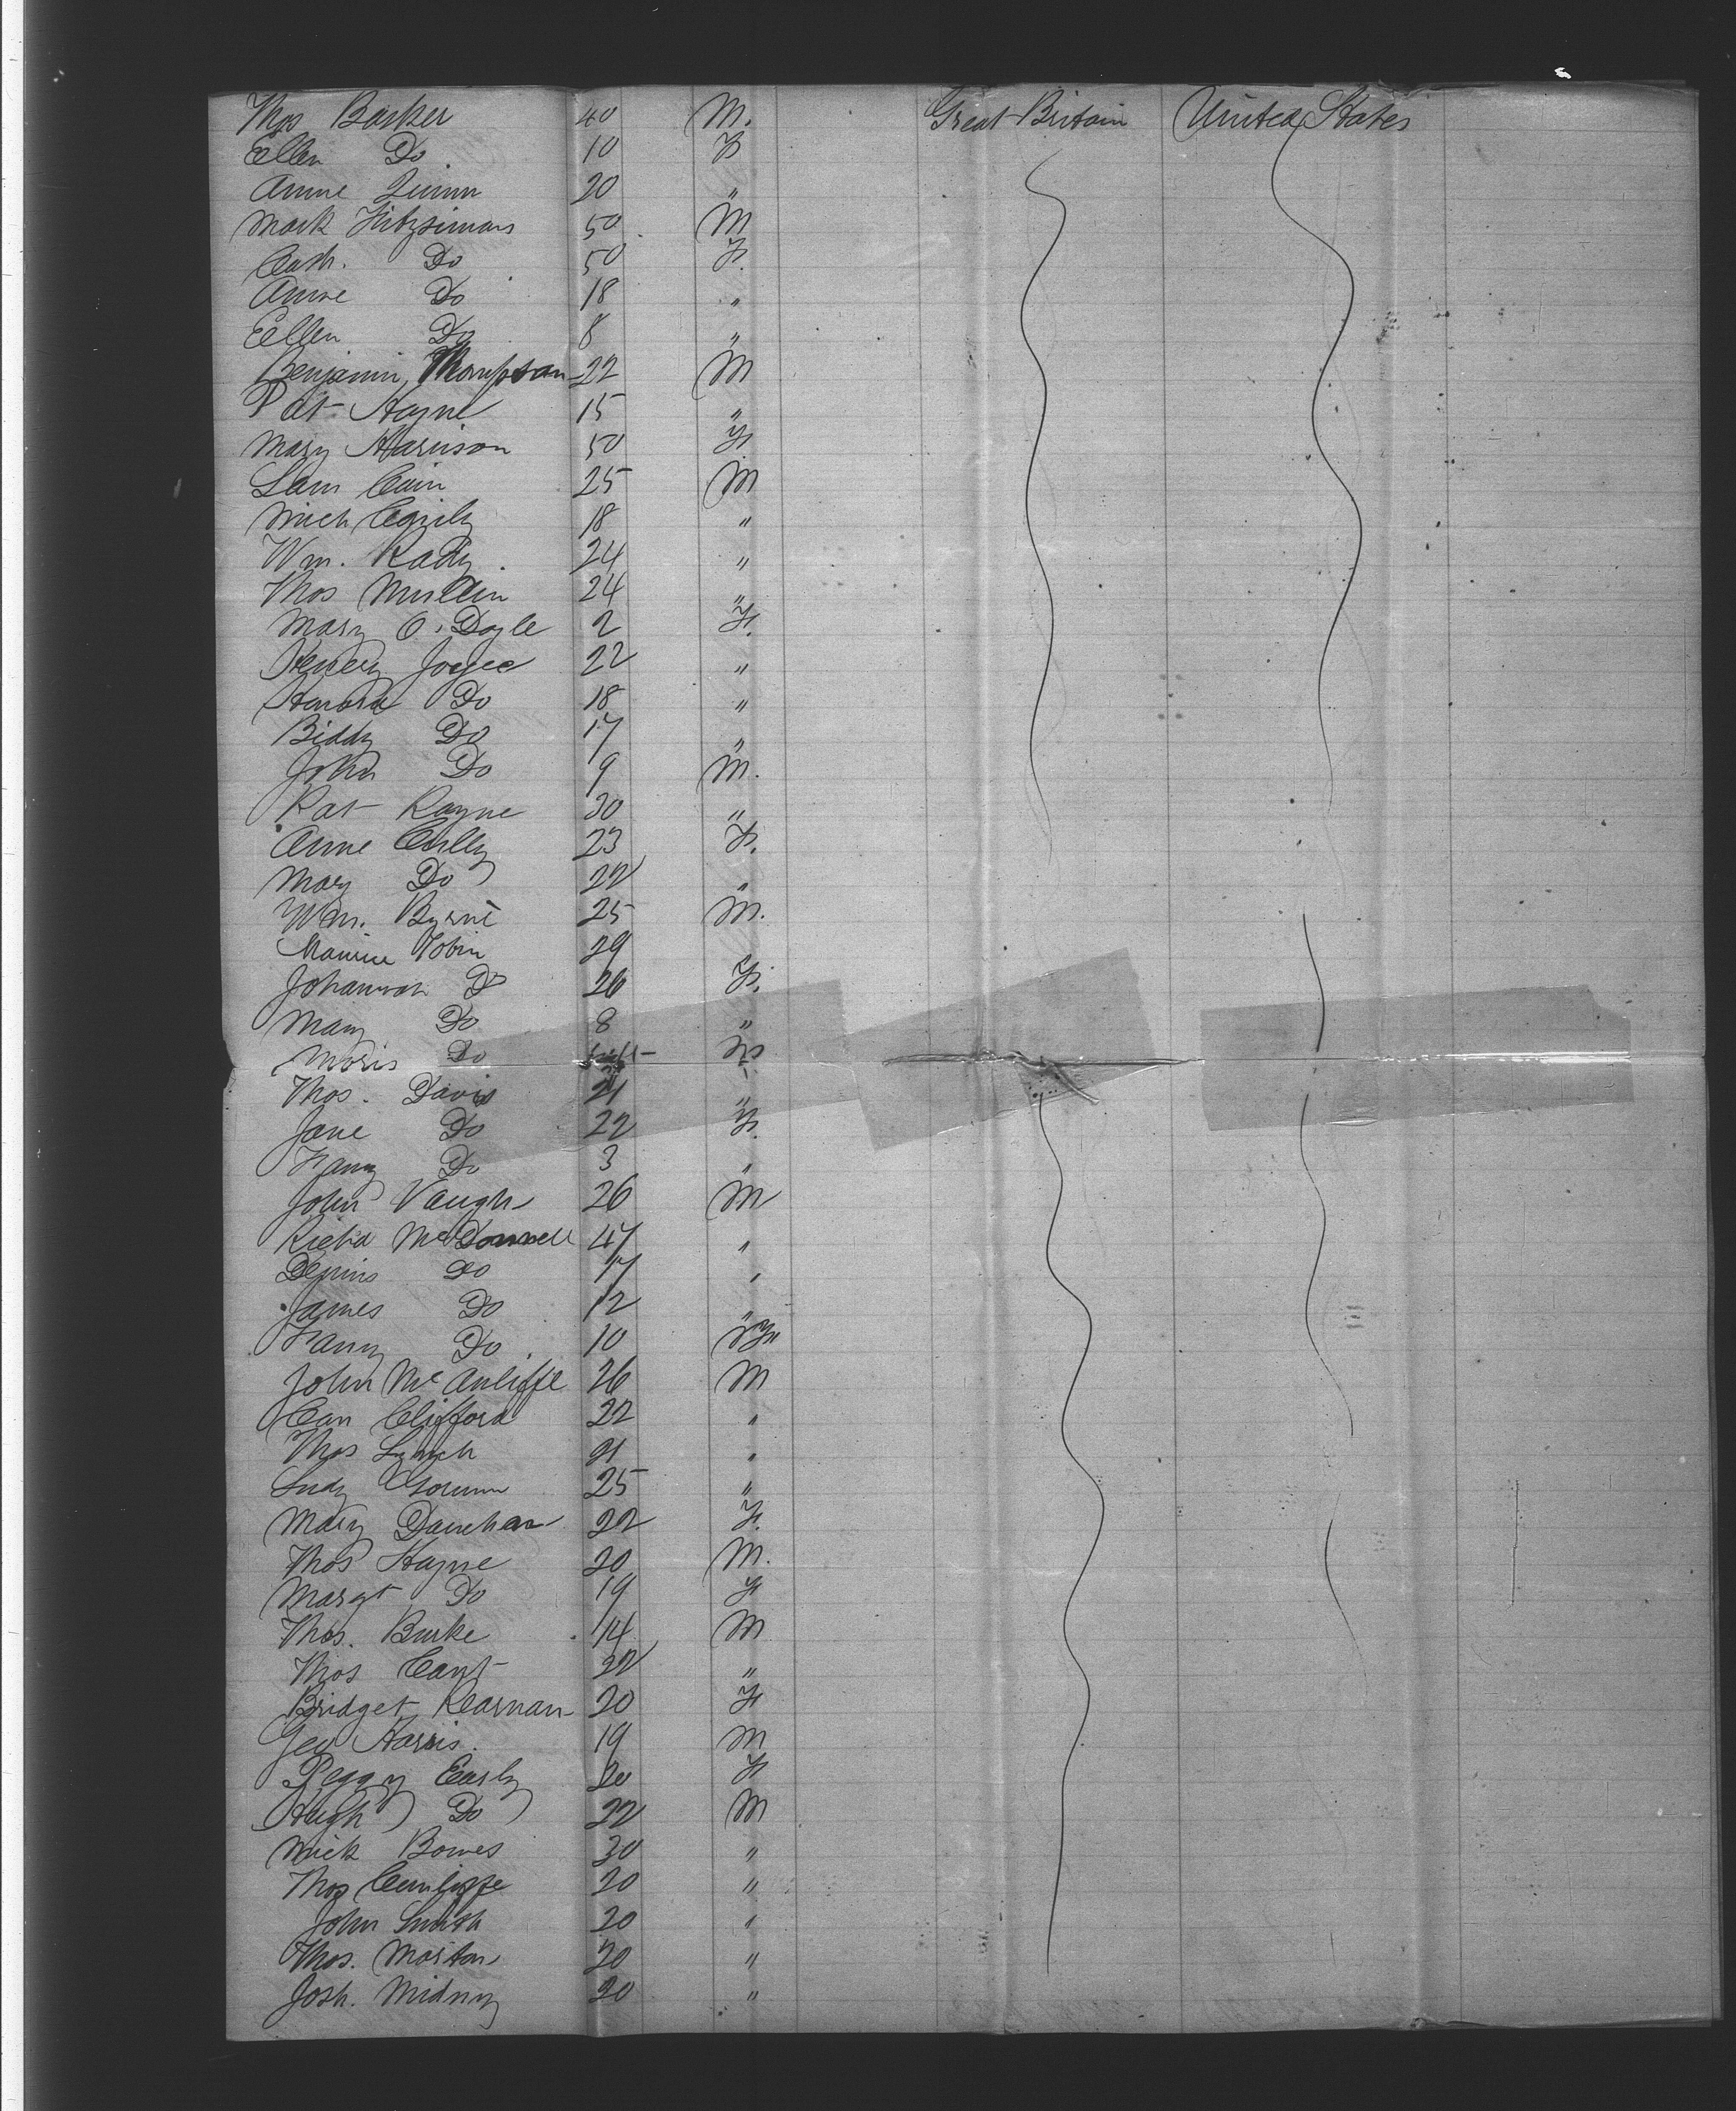 Thos Barker 40 M. Great Britain United States
Ellen Do. 10 F
Anne Quinn 20 "
Mark Fitzsimons 50 M
Cath. Do 50 F.
Anne Do 18 "
Ellen Do 8 "
Benjamin Thompson 22 M
Pat Hayne 15 "
Mary Harrison 50 F.
Sam Cain 25 M
Mich 18 "
Wm. Rady. 24 "
Thos 24 "
Mary O. Doyle 2 F.
Joyce 22 "
Honora Do 18 "
Biddy Do 17 "
John Do 9 M.
Pat Rayne 30 "
Anne Cully 23 F.
Mary Do 22 "
Wm. Byrne 25 M.
Maurice Tobin 29
Johannah Do 26 F.
Mary Do 8 "
Moris Do
Thos. Davis 21 "
Jane Do 22 F.
Fanny Do 3 "
John Vaugh 26 M
Richd McDonnell 47 "
Dennis Do 17 "
James Do 12 "
Fanny Do. 10 F
John McAuliffe 26 M
Con Clifford 22 "
Thos Lynch 21 "
25 "
Mary 22 F.
Thos Hayne 20 M.
Margt Do 19 F
Thos. Burke 14 M
Thos Cant 22 "
Bridget Kearnan 20 F
Geo Harris. 19 M
Peggy Early 20 F
Hugh Do 22 M
Mick Bowes 30 "
Thos Cunliffe 20 "
John Smith 20 "
Thos. Morton 20 "
Josh. 20 "